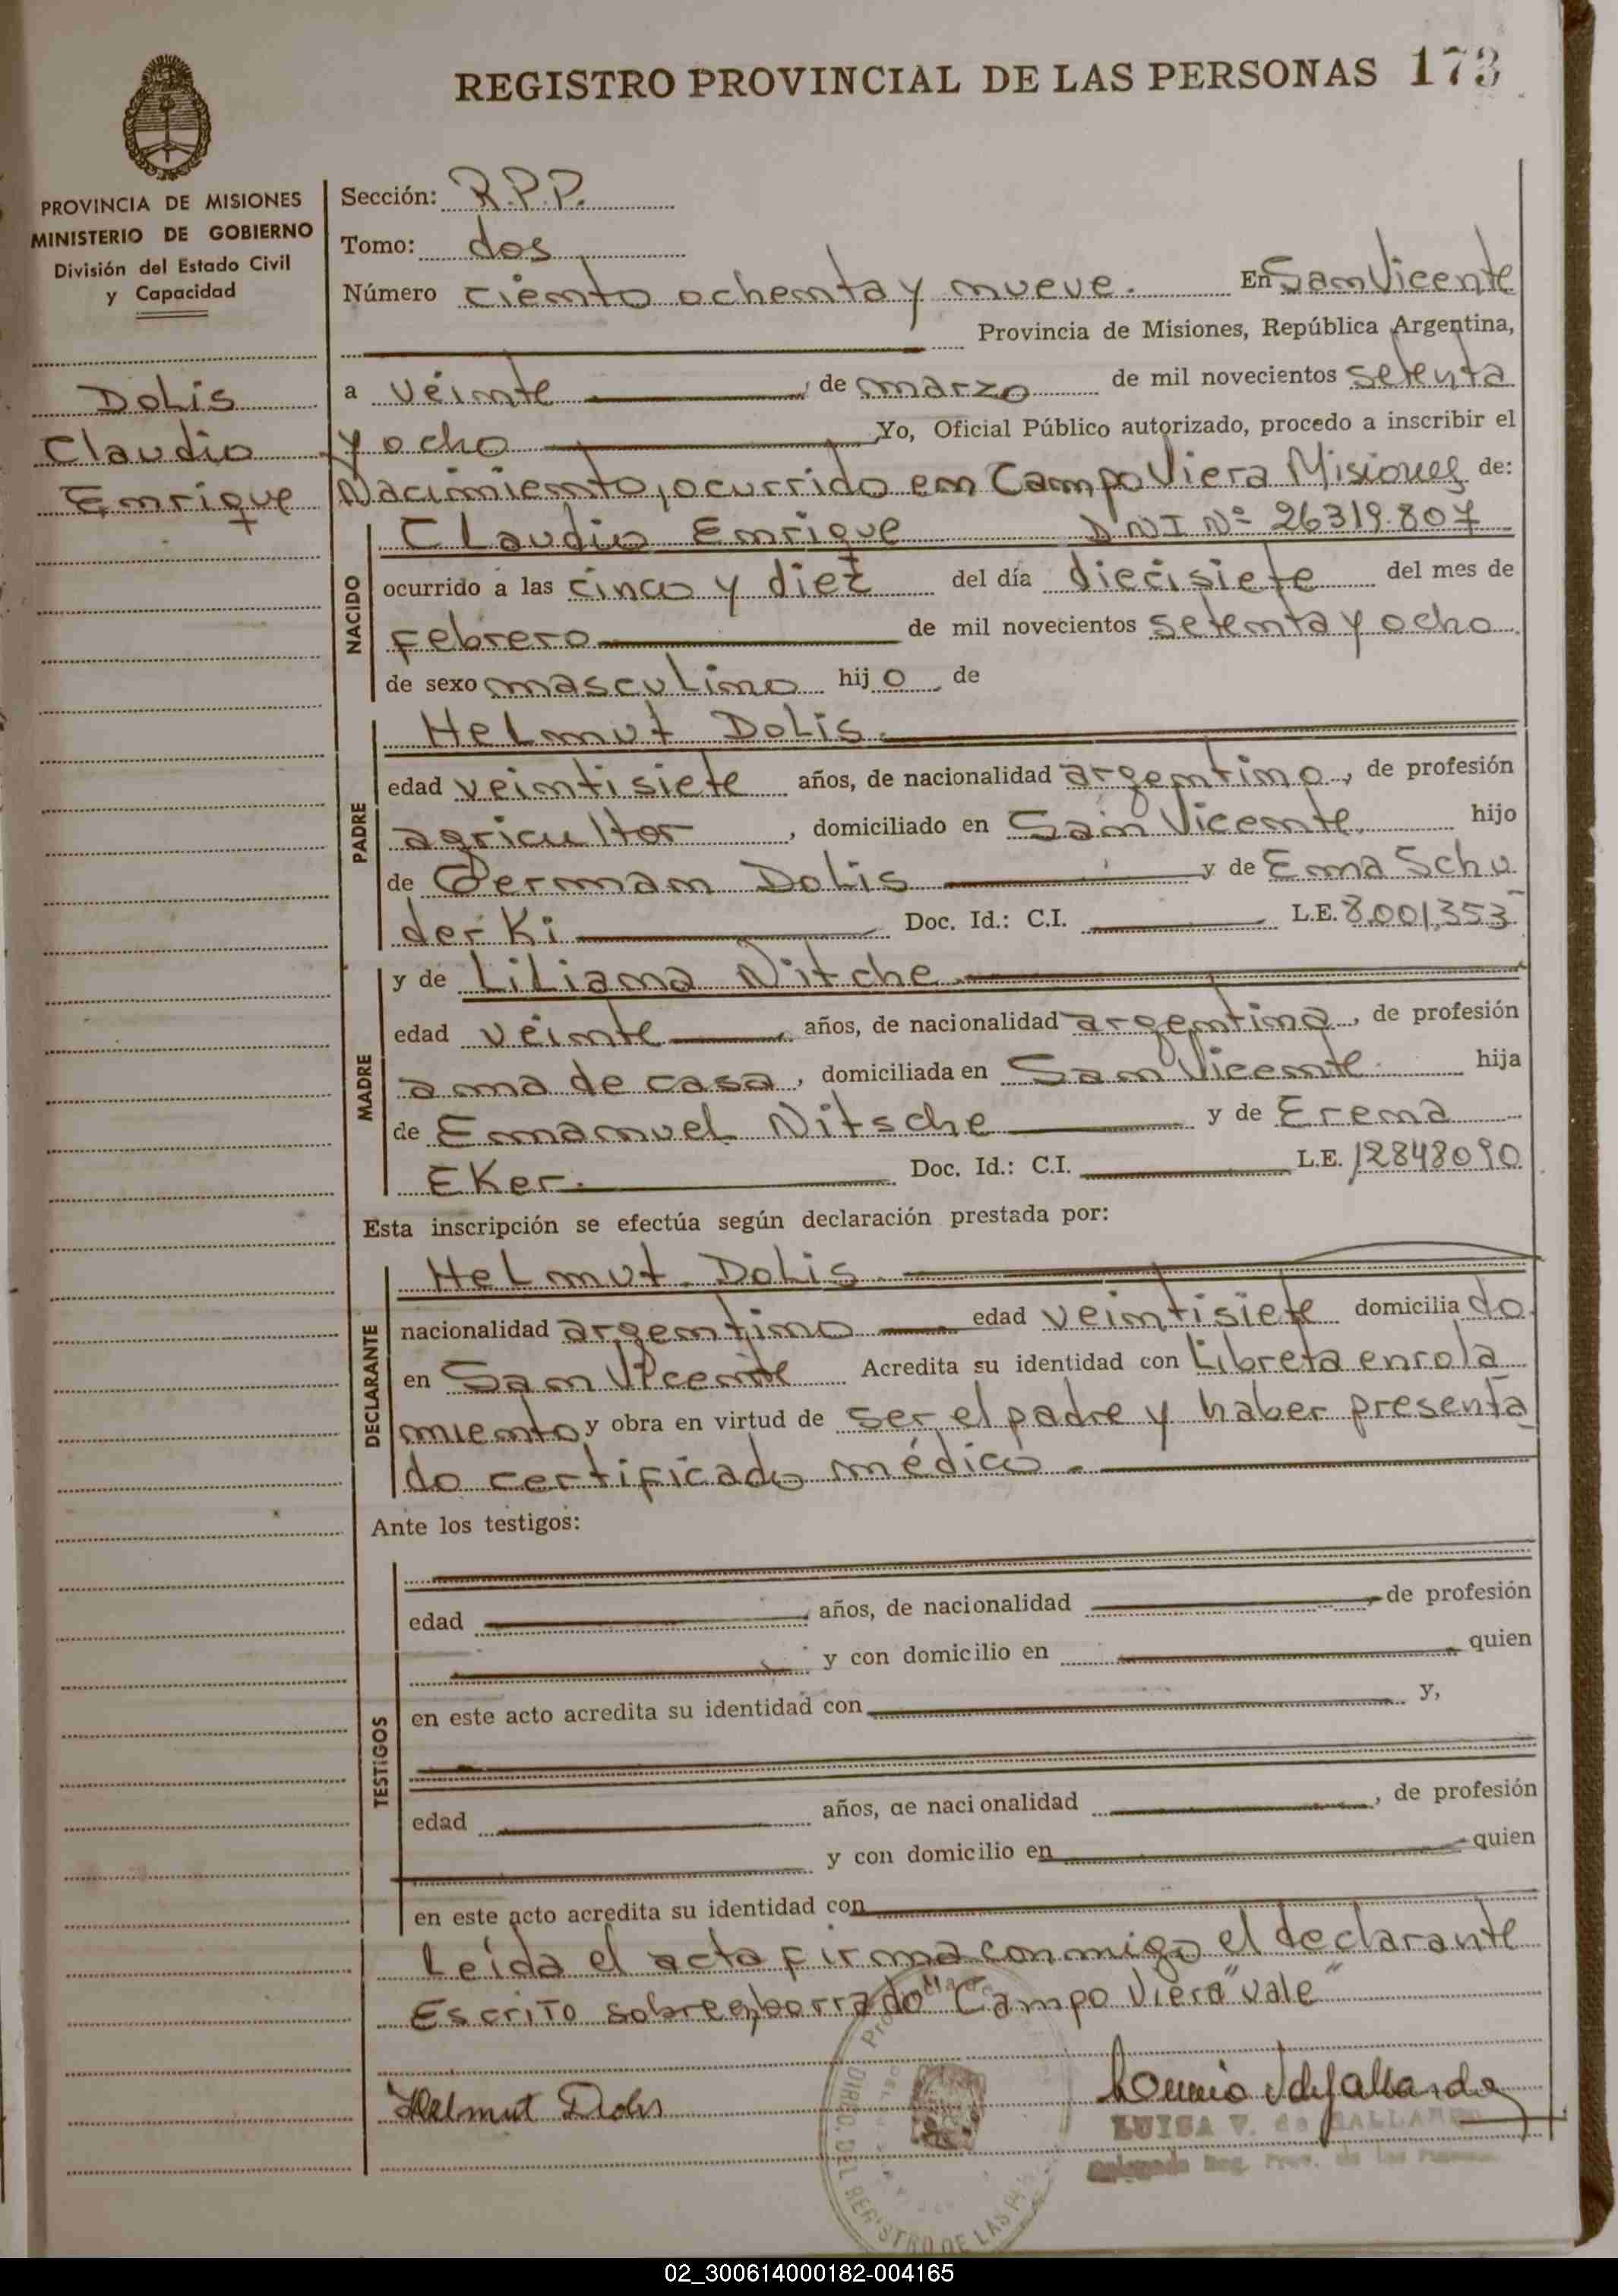 REGISTRO PROVINCIAL DE LAS PERSONAS 173
PROVINCIA DE MISIONES
MINISTERIO DE GOBIERNO
División del Estado Civil
y Capacidad
Dolis
Claudio
Enrique
Sección: R.P.P.
Tomo: dos
Número ciento ochenta y nueve. En San Vicente
Provincia de Misiones, República Argentina,
a veinte, de marzo de mil novecientos setenta
y ocho Yo, Oficial Público autorizado, procedo a inscribir el
Nacimiento, ocurrido en Campo Viera Misiones de:
NACIDO
Claudio Enrique DNI Nº 26319.807
ocurrido a las cinco y diez del día diecisiete del mes de
febrero de mil novecientos setenta y ocho
de sexo masculino hijo de
PADRE
Helmut Dolis.
edad veintisiete años, de nacionalidad argentino, de profesión
agricultor, domiciliado en San Vicente. hijo
de German Dolis y de Ema Schu
derki Doc. Id.: C.I. L.E. 8.001.353
MADRE
y de Liliana Nitche.
edad veinte, años, de nacionalidad argentina, de profesión
ama de casa, domiciliada en San Vicente. hija
de Emanuel Nitsche y de Erena
Eker. Doc. Id.: C.I. L.E. 12848090
Esta inscripción se efectúa según declaración prestada por:
DECLARANTE
Helmut Dolis.
nacionalidad argentino edad veintisiete domiciliado
en San Vicente Acredita su identidad con Libreta enrola
miento y obra en virtud de ser el padre y haber presenta
do certificado médico.
Ante los testigos:
TESTIGOS
edad años, de nacionalidad de profesión
y con domicilio en quien
en este acto acredita su identidad con y,
edad años, de nacionalidad, de profesión
y con domicilio en quien
en este acto acredita su identidad con
Leída el acta firma conmigo el declarante
Escrito sobre borrado "Campo Viera" vale"
Helmut Dolis
LUISA V. de GALLARDO
DIREC. DEL REGISTRO DE LAS
02_300614000182-004165